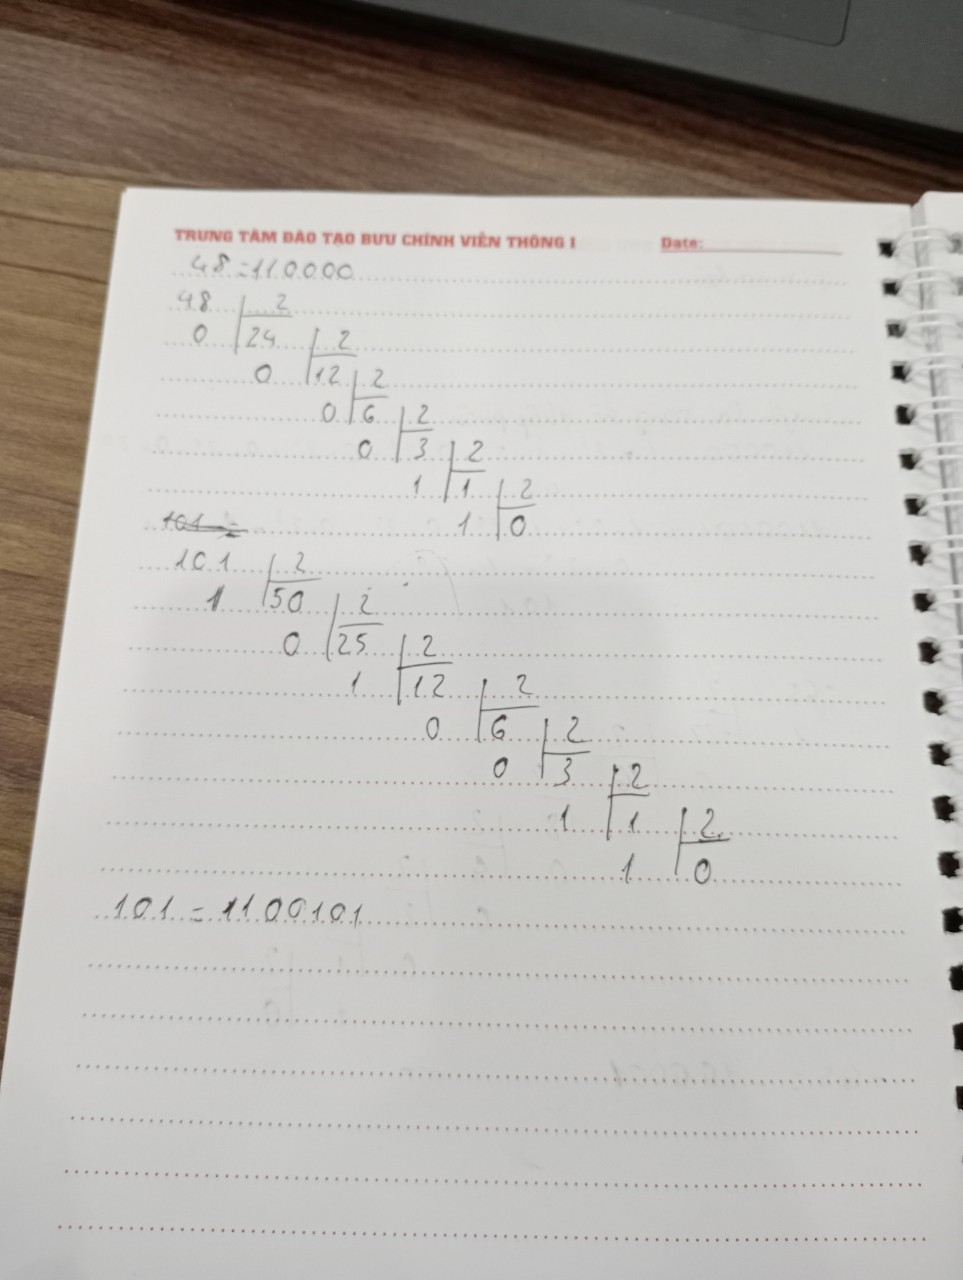 TRUNG TÂM ĐÀO TẠO BƯU CHÍNH VIỄN THÔNG I Date:
48=110000
48 2
0 24 2
0 12 2
0 6 2
0 3 2
1 1 2
101= 1 0
101 2
1 50 2
0 25 2
1 12 2
0 6 2
0 3 2
1 1 2
1 0
101=1100101